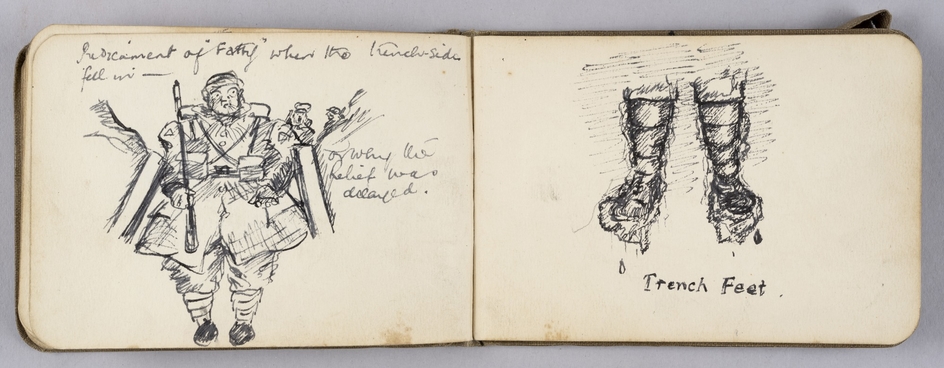 Predicament of "Fatty" when the trench-side
fell in —
or why the
relief was
delayed.
Trench Feet.